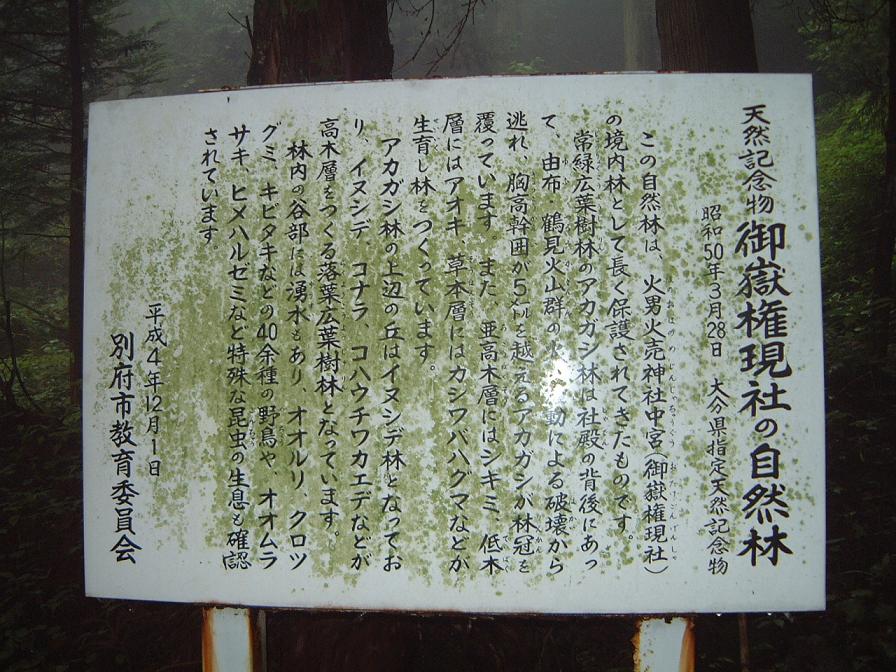 天然記念物 御嶽権現社の自然林
昭和50年3月28日 大分県指定天然記念物
この自然林は、火男火売神社中宮(御嶽権現社)
の境内林として長く保護されてきたものです。
常緑広葉樹林のアカガシ林は社殿の背後にあっ
て、由布・鶴見火山群の 動による破壊から
逃れ、胸高幹囲が5㍍を越えるアカガシが林冠を
覆っています また、亜高木層にはシキミ、低木
層にはアオキ、草本層にはカシワバハグマなどが
生育し林をつくっています。
アカガシ林の上辺の丘はイヌシデ林となってお
り、イヌシデ、コナラ、コハウチワカエデなどが
高木層をつくる落葉広葉樹林となっています。
林内の谷部には湧水もあり、オオルリ、クロツ
グミ、キビタキなどの40余種の野鳥や、オオムラ
サキ、ヒメハルゼミなど特殊な昆虫の生息も確認
されています
平成4年12月1日
別府市教育委員会